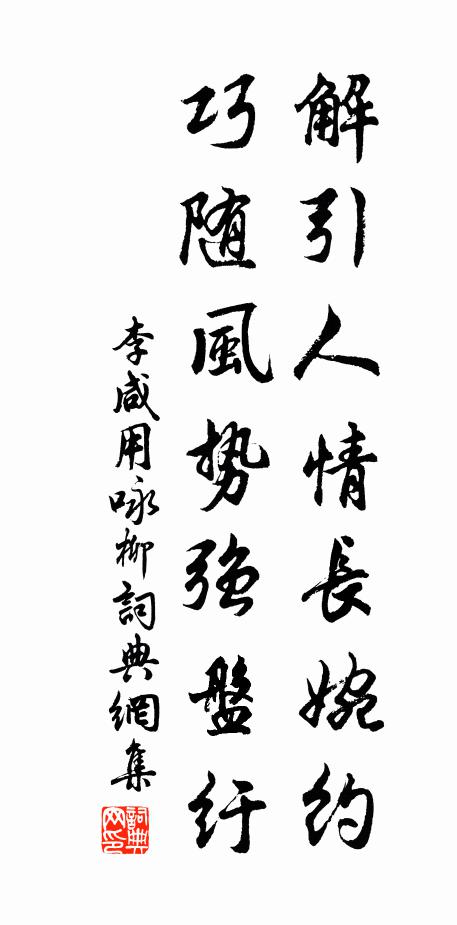 解引人情長婉約
巧随風勢強盤紆
李咸用咏柳詞典網集
詞典网印